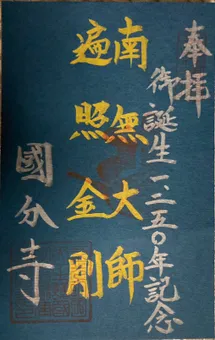 奉拝
御誕生一二五〇年記念
南無大師
遍照金剛
國分寺